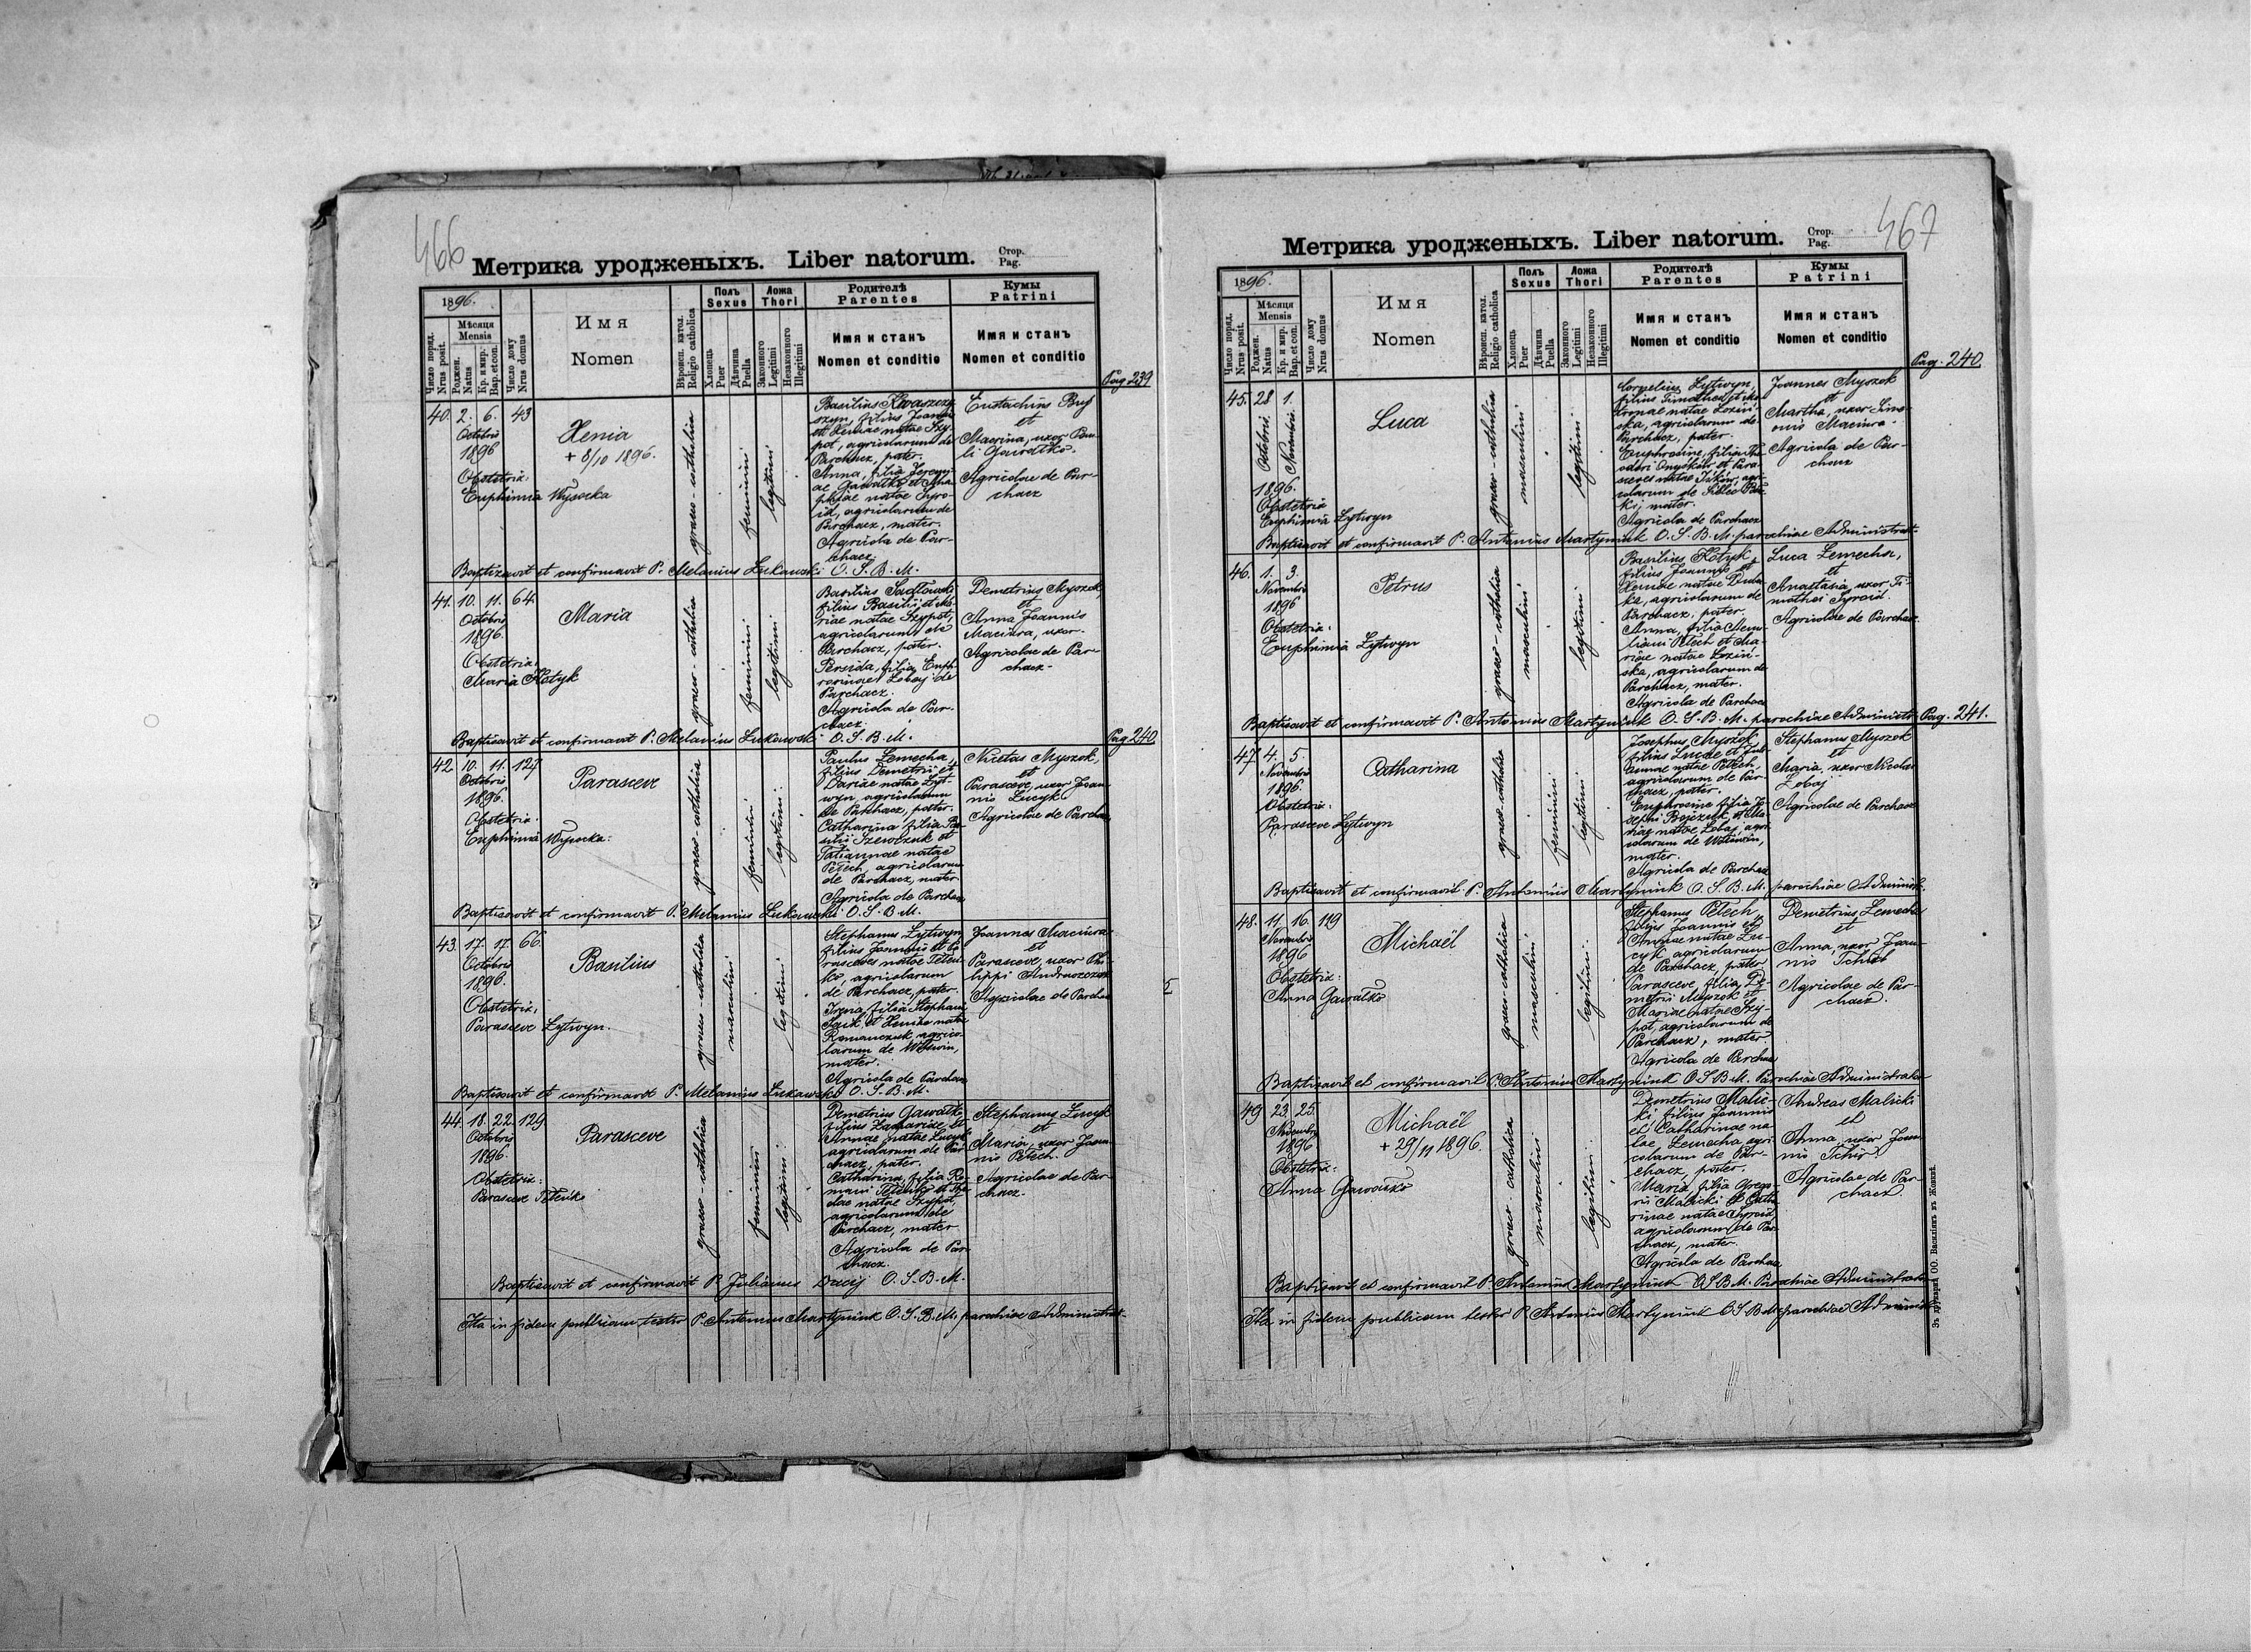 466
Метрика уродженыхъ. Liber natorum. Стор. Pag.
1896.
Число поряд. Nrus posit.
Мѣсяця Mensis
Роджен. Natus
Кр. и мир. Bap. et con.
Число дому Nrus domus
Имя
Nomen
Вѣроисп. катол. Religio catholica
Полъ Sexus
Хлопець Puer
Дѣвчина Puella
Ложа Thori
Законного Legitimi
Незаконного Illegitimi
Родителѣ
Parentes
Имя и станъ
Nomen et conditio
Кумы
Patrini
Имя и станъ
Nomen et conditio
Pag 239
40. 2. 6. 43
Octobris
1896
Obstetrix:
Euphimia Wysocka
Xenia
+ 8/10 1896.
graeco-catholica
feminini
legitimi
Basilius
szyn, filius Joannis
et Xeniae natae Szy-
pot, agricolarum de
Parchacz, pater.
Anna, filia
ae Gawatko et
natae Syro-
id, agricolarum de
Parchacz, mater.
Agricola de Par-
chacz.
Eustachius Buj
et
Macrina, uxor
Gawatko.
Agricolae de Par-
chacz
Baptisavit et confirmavit P. Melanius Lukawski O. S. B. M.
41. 10. 11. 64.
Octobris
1896.
Obstetrix:
Maria Kotyk
Maria
graeco-catholica
feminini
legitimi
Basilius Sadowski
filius Basilii et Ma-
riae natae Szypot,
agricolarum de
Parchacz, pater.
Persida, filia Euph-
rosinae Lobaj de
Parchacz.
Agricola de Par-
chacz.
Demetrius Myszok,
et
Anna Joannis
Maciura, uxor.
Agricolae de Par-
chacz.
Baptisavit et confirmavit P. Melanius Lukawski O. S. B. M.
Pag 240
42. 10. 11. 127
Octobris
1896.
Obstetrix:
Euphimia Wysocka:
Parasceve
graeco-catholica
feminini
legitimi
Paulus Lemecha,
filius Demetrii et
Dariae natae Lyt-
wyn, agricolarum
de Parchacz, pater.
Catharina, filia Ba-
silii Szewczuk et
Tatiannae natae
Petech, agricolarum
de Parchacz, mater
Agricola de Parchacz
Nicetas Myszok,
et
Parasceve, uxor Joan-
nis Lucyk
Agricolae de Parchacz
Baptisavit et confirmavit P. Melanius Lukawski O. S. B. M.
43. 17. 17. 66.
Octobris
1896.
Obstetrix:
Parasceve Lytwyn.
Basilius
graeco-catholica
masculini
legitimi
Stephanus Lytwyn
filius Joannis et Pa-
rasceves natae
agricolarum
de Parchacz, pater.
Irena, filia Stephani
et natae
Romanczuk, agrico-
larum de
mater.
Agricola de Parchacz
Joannes Maciura
et
Parasceve, uxor Phi-
lippi
Agricolae de Parchacz
Baptisavit et confirmavit P. Melanius Lukawski O. S. B. M.
44. 18. 22. 129
Octobris
1896.
Obstetrix:
Parasceve
Parasceve
graeco-catholica
feminini
legitimi
Demetrius Gawatko
filius Zachariae et
Annae natae Lucyk
agricolarum de Par-
chacz, pater.
Catharina, filia Ro-
mani et
natae Szypot,
agricolarum de
Parchacz, mater
Agricola de Par-
chacz.
Stephanus Lucyk
et
Maria, uxor Joan-
nis Petech.
Agricolae de Par-
chacz.
Baptisavit et confirmavit P. Julianus Dacij O. S. B. M.
Ita in fidem publicam testor P. Antonius Martyniuk O. S. B. M. parochiae Administrat.
467
Метрика уродженыхъ. Liber natorum. Стор. Pag.
1896.
Число поряд. Nrus posit.
Мѣсяця Mensis
Роджен. Natus
Кр. и мир. Bap. et con.
Число дому Nrus domus
Имя
Nomen
Вѣроисп. катол. Religio catholica
Полъ Sexus
Хлопець Puer
Дѣвчина Puella
Ложа Thori
Законного Legitimi
Незаконного Illegitimi
Родителѣ
Parentes
Имя и станъ
Nomen et conditio
Кумы
Patrini
Имя и станъ
Nomen et conditio
Pag. 240.
45. 28. 1.
Octobris. Novembris.
1896.
Obstetrix
Euphimia Lytwyn
Luca
graeco-catholica
masculini
legitimi
Cornelius Lytwyn,
filius Timothei et
natae Lozin-
ska, agricolarum de
Parchacz, pater.
Euphrosine, filia The-
odori et Para-
sceves natae agri-
colarum de
mater.
Agricola de Parchacz
Joannes Myszok
et
Martha, uxor Sime-
onis Maciura.
Agricola de Par-
chacz
Baptisavit et confirmavit P. Antonius Martyniuk O. S. B. M. parochiae Administrat.
46. 1. 3.
Novembris
1896
Obstetrix:
Euphimia Lytwyn
Petrus
graeco-catholica
masculini
legitimi
Basilius Kotyk,
filius Joannis et
Xeniae natae
agricolarum de
Parchacz, pater.
Anna, filia Aemi-
liani Petech et Ma-
riae natae Lozin-
ska, agricolarum de
Parchacz, mater.
Agricola de Parchacz
Luca Lemecha,
et
Anastasia, uxor Ti-
mothei Syroid.
Agricolae de Parchacz
Baptisavit et confirmavit P. Antonius Martyniuk O. S. B. M. parochiae Administr.
Pag. 241.
47. 4. 5.
Novembris
1896.
Obstetrix:
Parasceve Lytwyn
Catharina
graeco-catholica
feminini
legitimi
Josephus Myszok
filius Lucae et Juli-
annae natae Petech,
agricolarum de Par-
chacz, pater.
Euphrosine filia Jo-
sephi et Ma-
riae natae Lobaj, agri-
colarum de
mater.
Agricola de Parchacz
Stephanus Myszok
et
Maria, uxor Nicolai
Lobaj
Agricolae de Parchacz
Baptisavit et confirmavit P. Antonius Martyniuk O. S. B. M. parochiae Administr.
48. 11. 16. 119
Novembris
1896
Obstetrix:
Anna Gawatko
Michaël
graeco-catholica
masculini
legitimi
Stephanus Petech
filius Joannis et
Annae natae Lu-
cyk agricolarum
de Parchacz, pater
Parasceve, filia De-
metrii Myszok et
Mariae natae Szy-
pot, agricolarum de
Parchacz, mater
Agricola de Parchacz
Demetrius Lemecha
et
Anna, uxor Joan-
nis Tchir
Agricolae de Par-
chacz.
Baptisavit et confirmavit P. Antonius Martyniuk O S B M. Parochiae Administrator
49 23. 25.
Novembris
1896
Obstetrix:
Anna Gawatko
Michaël
+ 29/11 1896.
graeco-catholica
masculini
legitimi
Demetrius Malic-
ki filius Joannis
et Catharinae na-
tae Lemecha agri-
colarum de Par-
chacz, pater.
Maria filia Grego-
rii Malicki et Catha-
rinae natae Syroid
agricolarum de Par-
chacz, mater.
Agricola de Parchacz
Andreas Malicki
et
Anna, uxor Joan-
nis Tchir
Agricolae de Par-
chacz
Baptisavit et confirmavit P. Antonius Martyniuk O S B M. Parochiae Administrator
Ita in fidem publicam testor P. Antonius Martyniuk O S B M parochiae Administr.
Зъ друкарнѣ ОО. Василіянъ въ Жовквѣ.